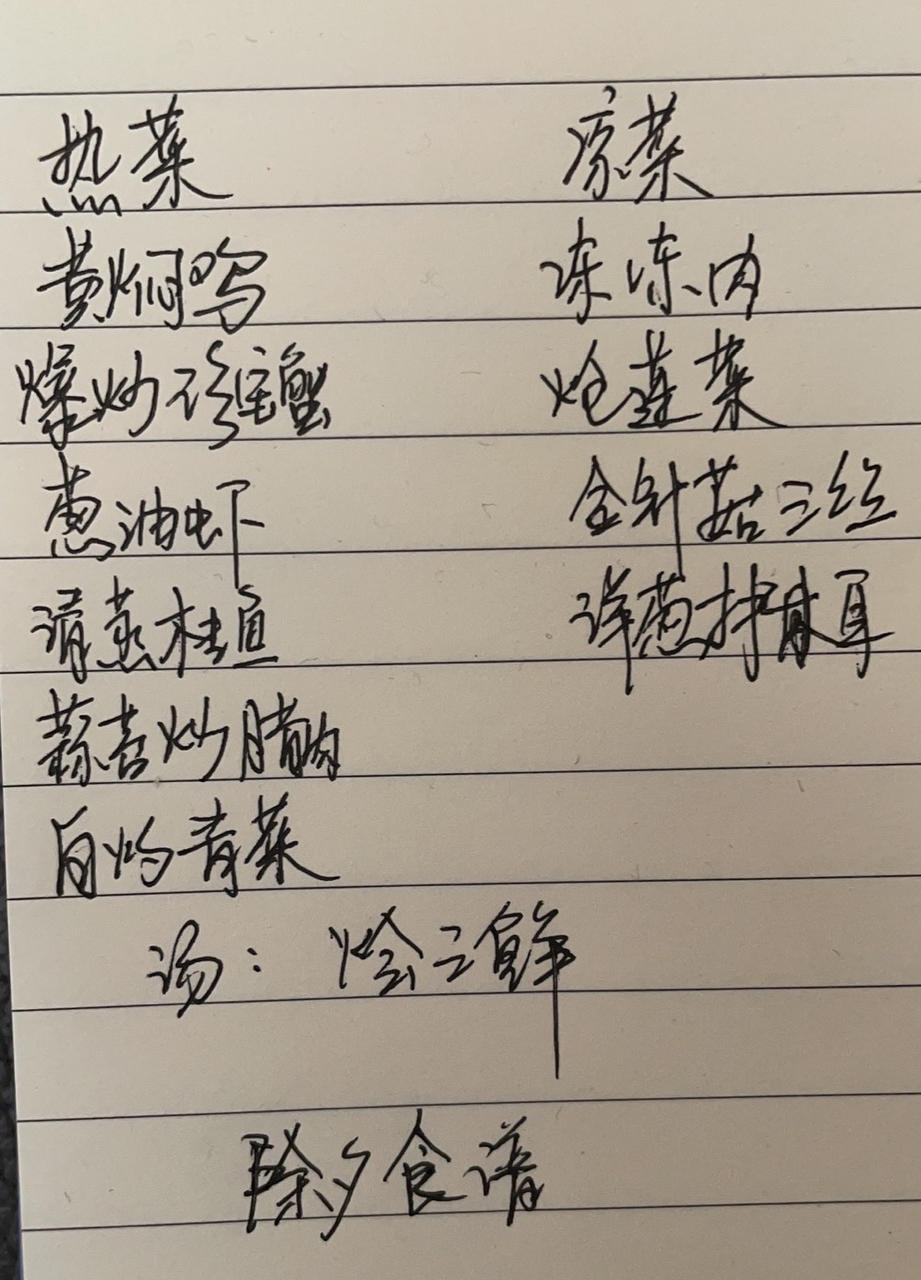 热菜 凉菜
黄焖鸡 冻冻肉
爆炒珍宝蟹 炝莲菜
葱油虾 金针菇三丝
清蒸桂鱼 洋葱拌木耳
蒜苔炒腊肉
白灼青菜
汤：烩三鲜
除夕食谱